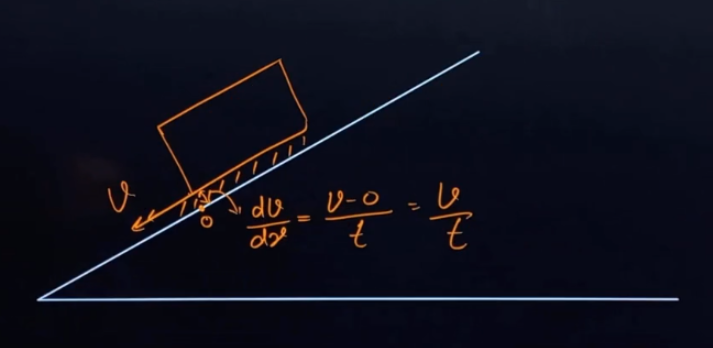 v
0
dv/dx = v-0/t = v/t